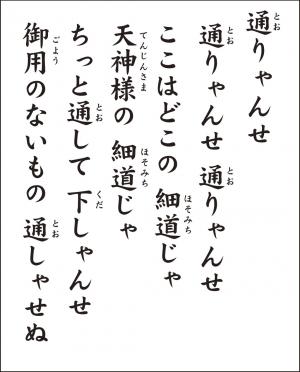 通りゃんせ
通りゃんせ 通りゃんせ
ここはどこの 細道じゃ
天神様の 細道じゃ
ちっと通して 下しゃんせ
御用のないもの 通しゃせぬ